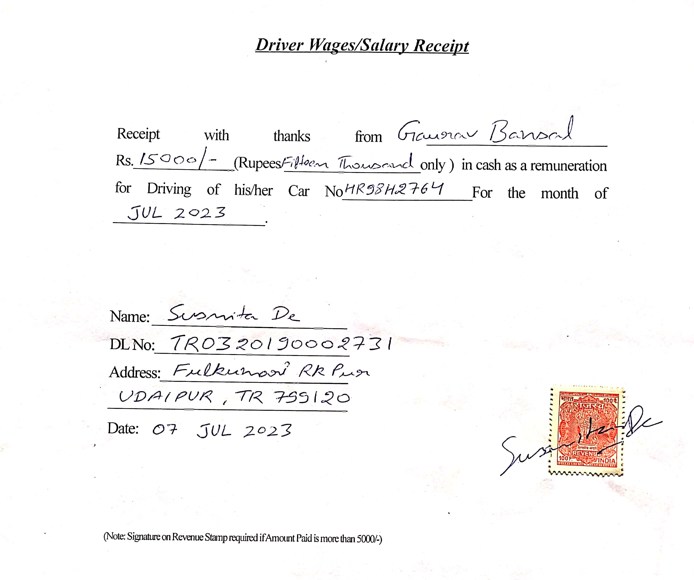 Driver Wages/Salary Receipt
Receipt with thanks from Gaurav Bansal
Rs. 15000/- (Rupees Fifteen Thousand only ) in cash as a remuneration
for Driving of his/her Car No HR98H2764 For the month of
JUL 2023.
Name: Susmita De
DL No: TR0320190002731
Address: Fulkumari RK Pur
UDAIPUR, TR 799120
Date: 07 JUL 2023
REVENUE
INDIA
Susmita De
(Note: Signature on Revenue Stamp required if Amount Paid is more than 5000/-)